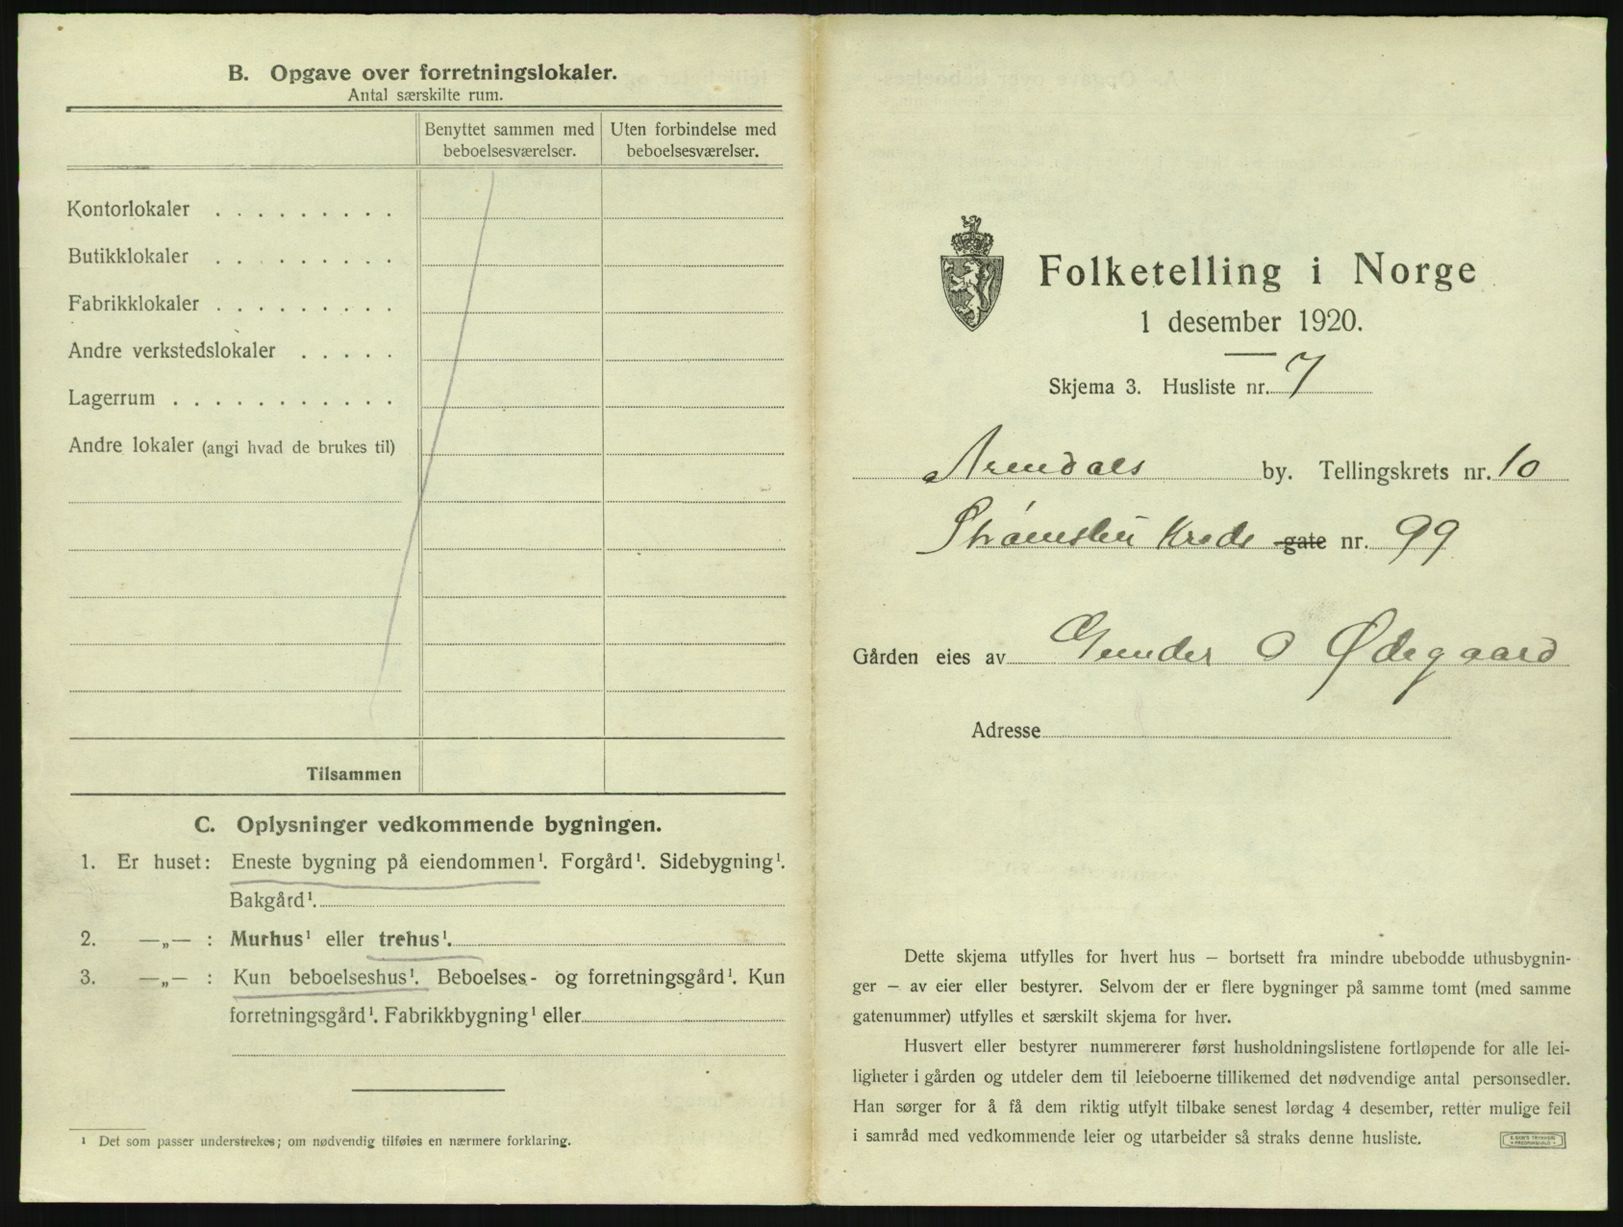 B. Opgave over forretningslokaler.
Antal særskilte rum.
Benyttet sammen med beboelsesværelser.
Uten forbindelse med beboelsesværelser.
Kontorlokaler . . . . . . . . .
Butikklokaler . . . . . . . . .
Fabrikklokaler . . . . . . . . .
Andre verkstedslokaler . . . . .
Lagerrum . . . . . . . . . . .
Andre lokaler (angi hvad de brukes til)
Tilsammen
C. Oplysninger vedkommende bygningen.
1. Er huset: Eneste bygning på eiendommen¹. Forgård¹. Sidebygning¹.
Bakgård¹.
2. —„— : Murhus¹ eller trehus¹.
3. —„— : Kun beboelseshus¹. Beboelses- og forretningsgård¹. Kun
forretningsgård¹. Fabrikkbygning¹ eller
¹ Det som passer understrekes; om nødvendig tilføies en nærmere forklaring.
Folketelling i Norge
1 desember 1920.
Skjema 3. Husliste nr. 7
Arendals by. Tellingskrets nr. 10
Strømsbu Kreds gate nr. 99
Gården eies av Gunder O Ødegaard
Adresse
Dette skjema utfylles for hvert hus – bortsett fra mindre ubebodde uthusbygnin-
ger – av eier eller bestyrer. Selvom der er flere bygninger på samme tomt (med samme
gatenummer) utfylles et særskilt skjema for hver.
Husvert eller bestyrer nummererer først husholdningslistene fortløpende for alle lei-
ligheter i gården og utdeler dem til leieboerne tillikemed det nødvendige antal personsedler.
Han sørger for å få dem riktig utfylt tilbake senest lørdag 4 desember, retter mulige feil
i samråd med vedkommende leier og utarbeider så straks denne husliste.